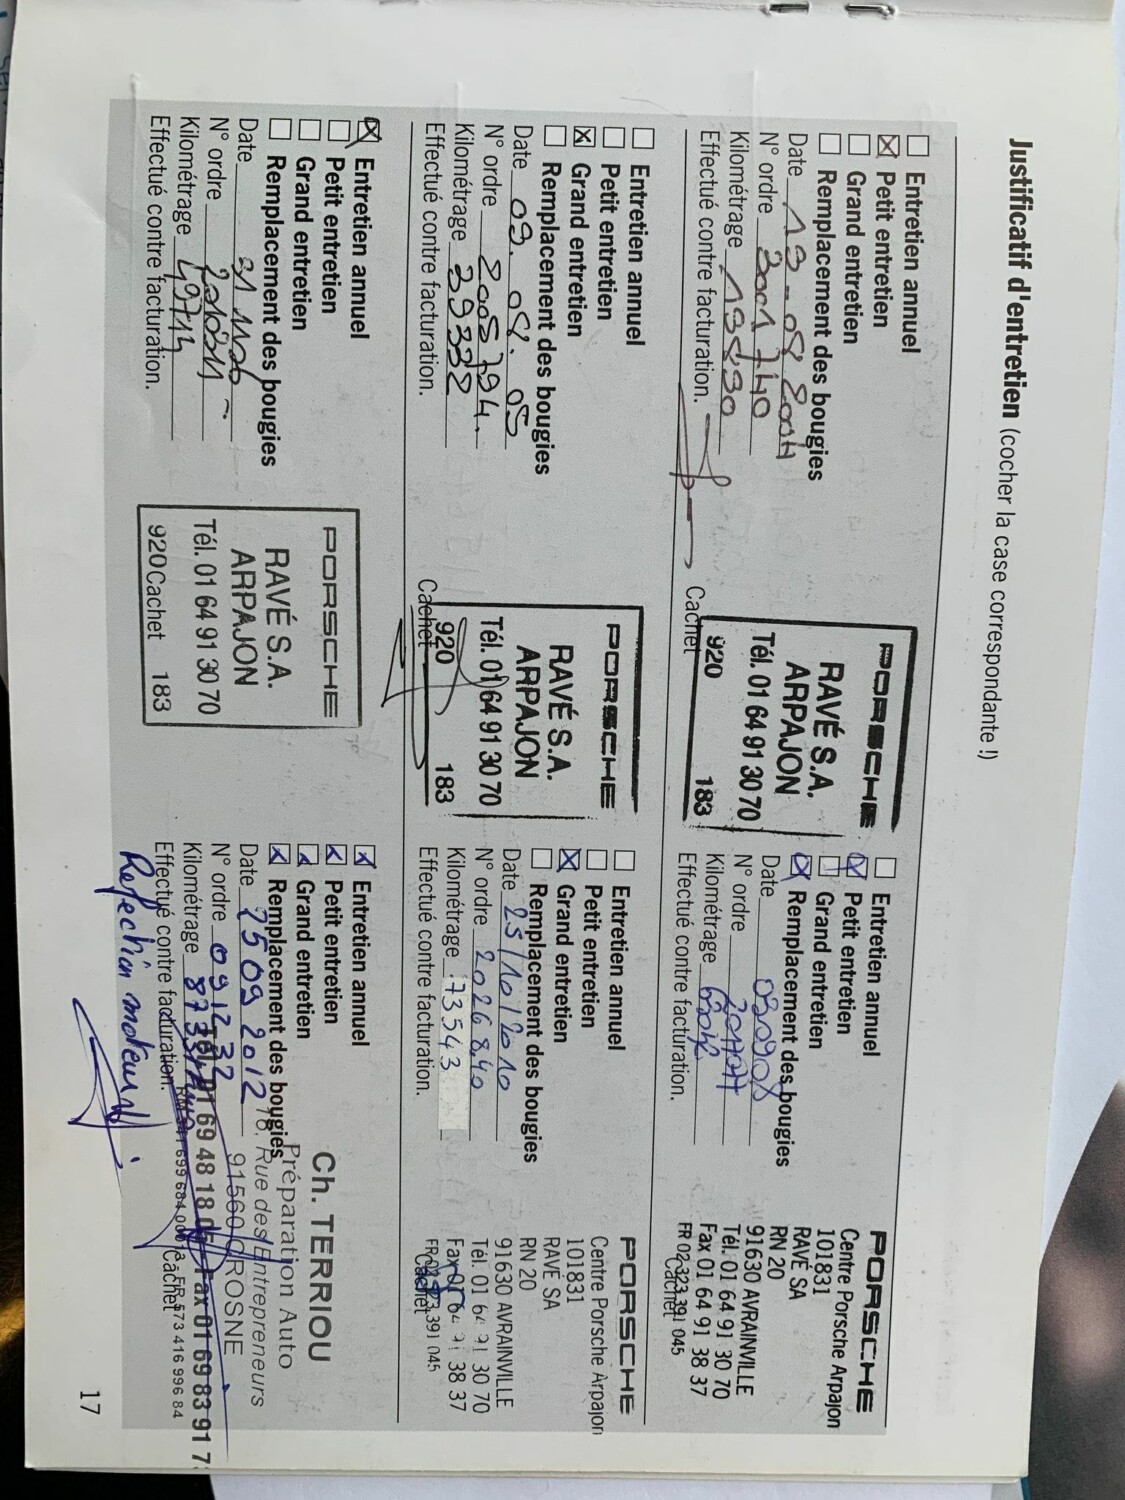 Justificatif d'entretien (cocher la case correspondante !)
Entretien annuel
Petit entretien
Grand entretien
Remplacement des bougies
Date 13-08 2004
N° ordre 2001740
Kilométrage
Effectué contre facturation.
PORSCHE
RAVÉ S.A.
ARPAJON
Tél. 01 64 91 30 70
920 183
Cachet
Entretien annuel
Petit entretien
Grand entretien
Remplacement des bougies
Date 09. 08. 05
N° ordre 2005794.
Kilométrage 39332
Effectué contre facturation.
PORSCHE
RAVÉ S.A.
ARPAJON
Tél. 01 64 91 30 70
920 183
Cachet
Entretien annuel
Petit entretien
Grand entretien
Remplacement des bougies
Date
N° ordre
Kilométrage 49714
Effectué contre facturation.
PORSCHE
RAVÉ S.A.
ARPAJON
Tél. 01 64 91 30 70
920 Cachet 183
Entretien annuel
Petit entretien
Grand entretien
Remplacement des bougies
Date
N° ordre
Kilométrage
Effectué contre facturation.
PORSCHE
Centre Porsche Arpajon
101831
RAVÉ SA
RN 20
91630 AVRAINVILLE
Tél. 01 64 91 30 70
Fax 01 64 91 38 37
FR 02 323 391 045
Cachet
Entretien annuel
Petit entretien
Grand entretien
Remplacement des bougies
Date 25/10/2010
N° ordre 2026840
Kilométrage 73543
Effectué contre facturation.
PORSCHE
Centre Porsche Arpajon
101831
RAVÉ SA
RN 20
91630 AVRAINVILLE
Tél. 01 64 91 30 70
Fax 01 64 91 38 37
391 045
Cachet
Entretien annuel
Petit entretien
Grand entretien
Remplacement des bougies
Date 25 09 2012
N° ordre 091232
Kilométrage
Effectué contre facturation.
Ch. TERRIOU
Préparation Auto
Rue des Entrepreneurs
91560 CROSNE
Tél. 01 69 48 18 Fax 01 69 83 91 7
FR 573 416 996 84
Cachet
Refection moteur
17